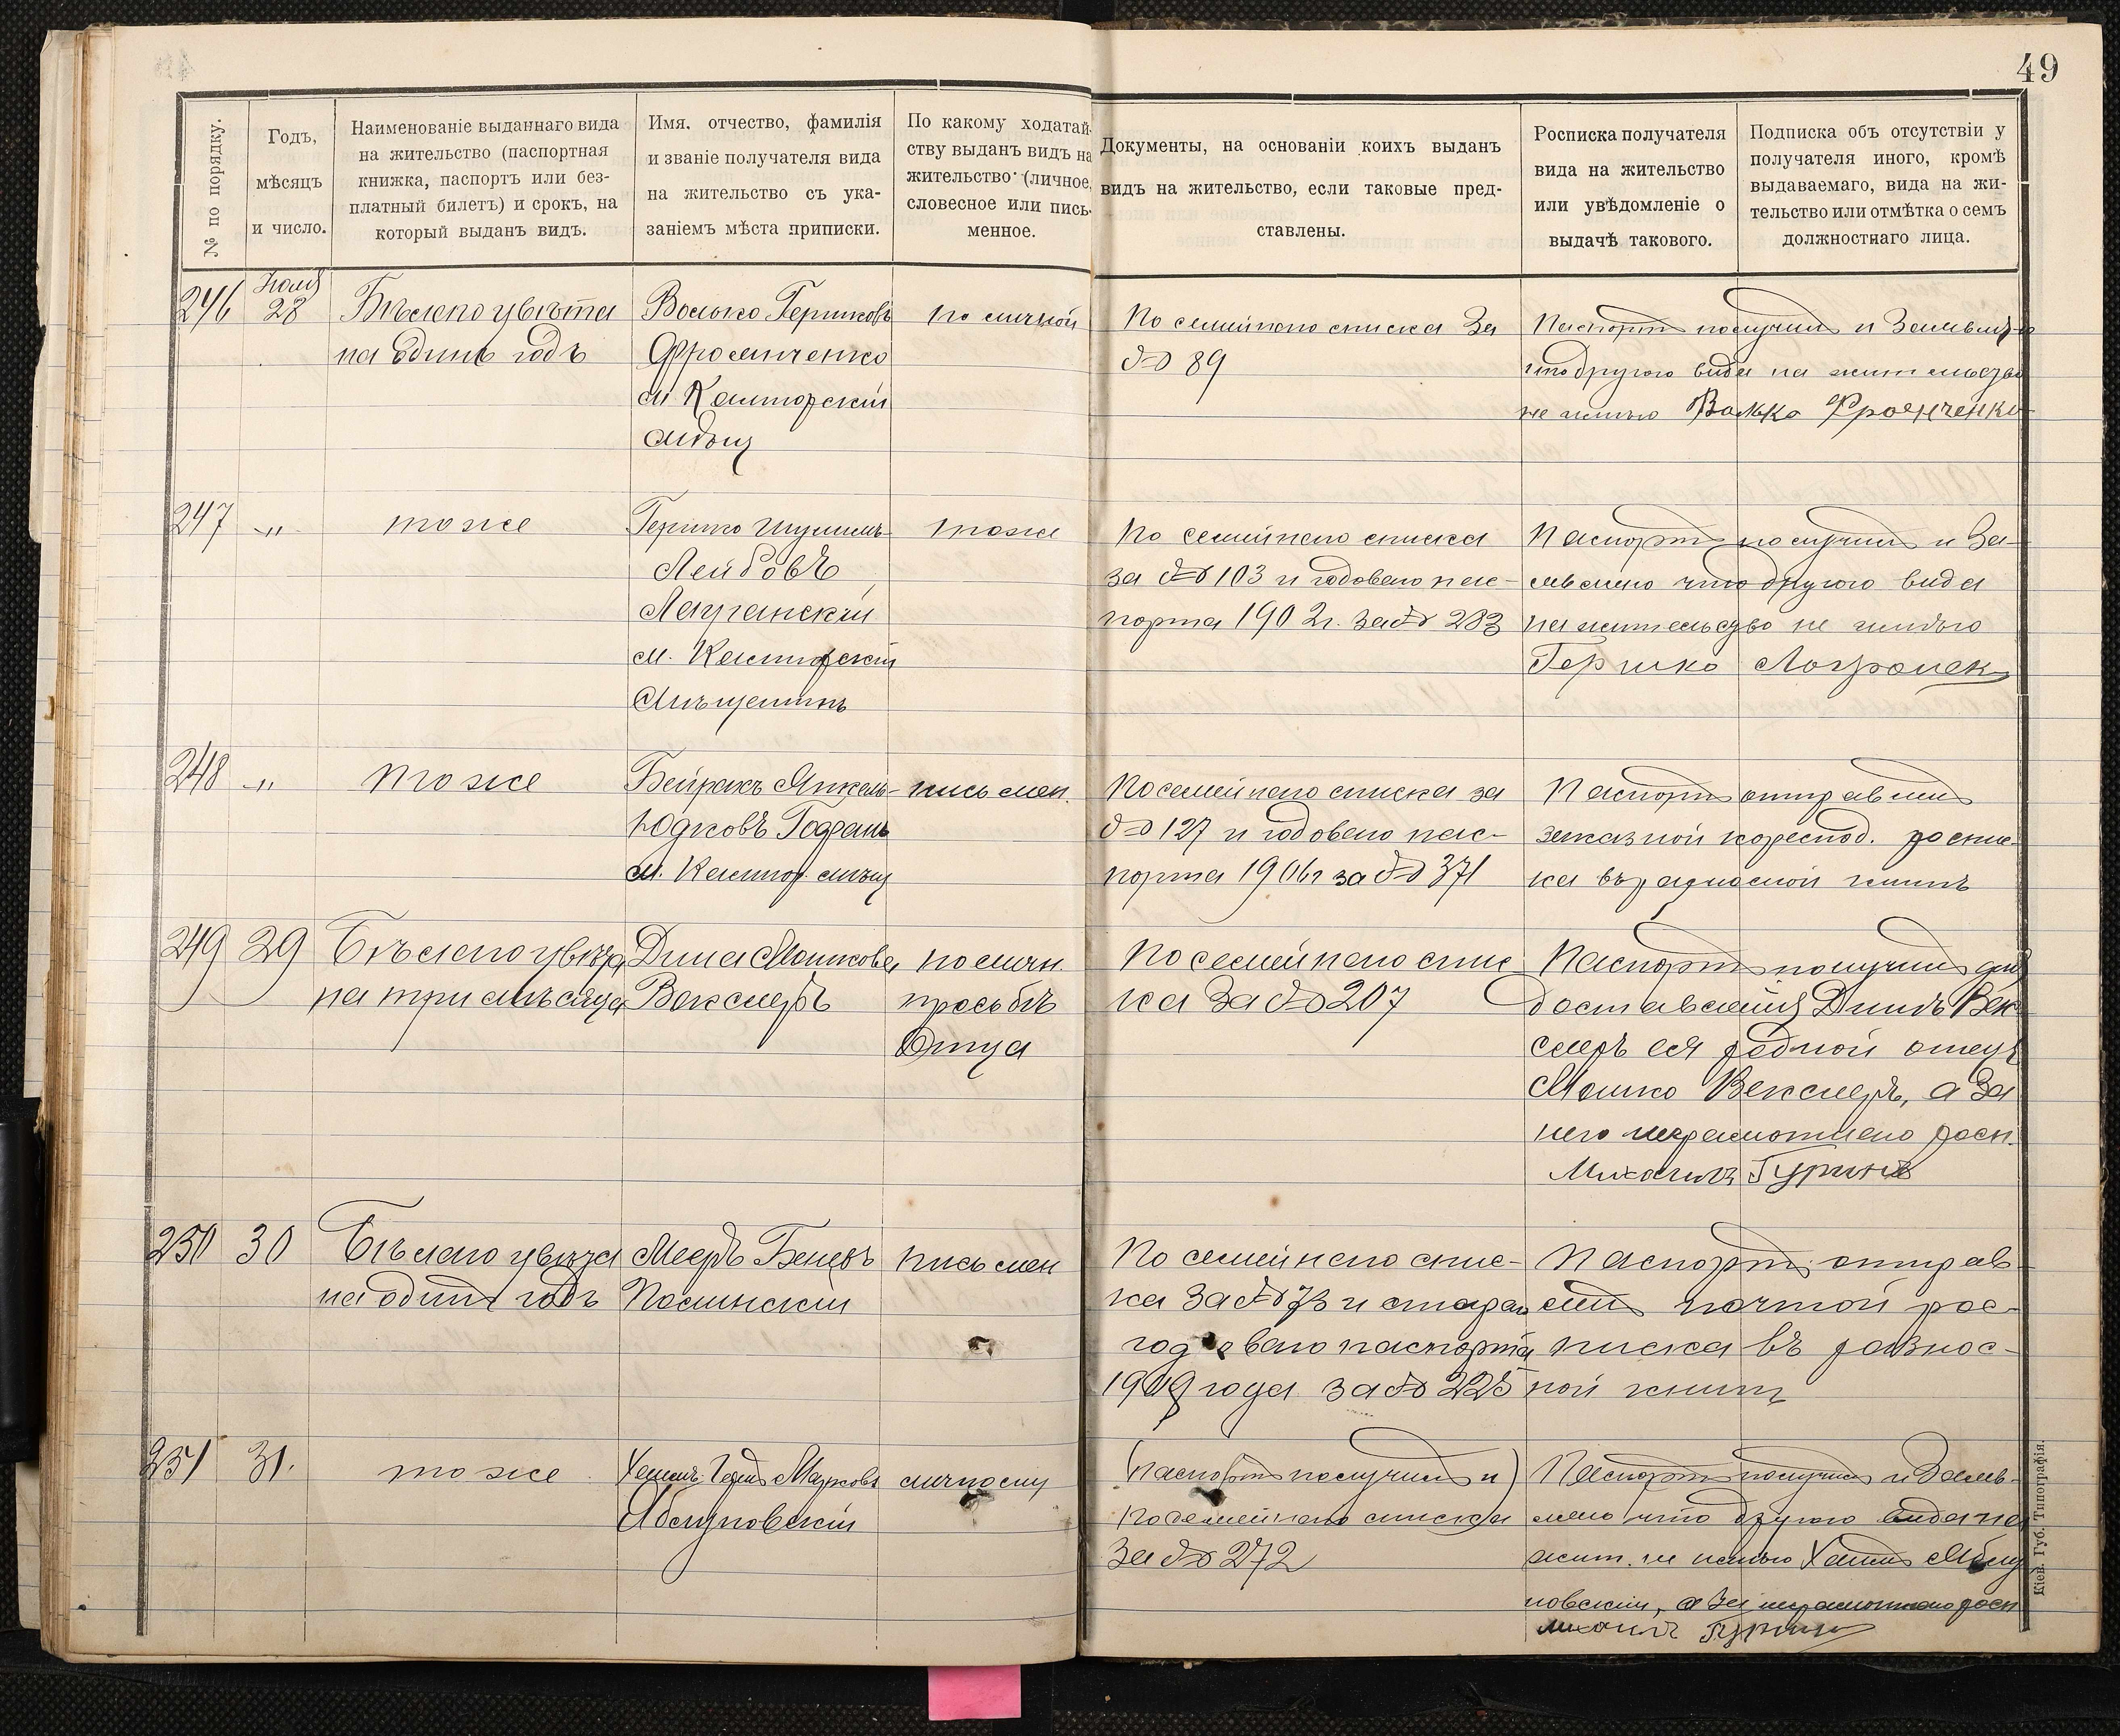 49
№ по порядку.
Годъ,
мѣсяцъ
и число.
Наименованіе выданнаго вида
на жительство (паспортная
книжка, паспортъ или без-
платный билетъ) и срокъ, на
который выданъ видъ.
Имя, отчество, фамилія
и званіе получателя вида
на жительство съ ука-
заніемъ мѣста приписки.
По какому ходатай-
ству выданъ видъ на
жительство (личное,
словесное или пись-
менное.
Документы, на основаніи коихъ выданъ
видъ на жительство, если таковые пред-
ставлены.
Росписка получателя
вида на жительство
или увѣдомленіе о
выдачѣ такового.
Подписка объ отсутствіи у
получателя иного, кромѣ
выдаваемаго, вида на жи-
тельство или отмѣтка о семъ
должностнаго лица.
246
28
Бѣлаго цвѣта
на одинъ годъ
Волько Гершковъ
Фроимченко
м
по личной
По семейнаго списка За
№ 89
Паспортъ получилъ и Заявляю
что другого вида на жительство
не имѣю Волько Фроимченко
247
"
тоже
Гершко Шулимъ-
Лейбовъ
м.
Мѣщанинъ
тоже
По семейнаго списка
за № 103 и годоваго пас-
порта 1902г. за № 283
Паспортъ получилъ и За-
являю что другого вида
на жительство не имѣю
Гершко
248
"
тоже
Янкель-
Юдковъ
м.
письмен.
По семейнаго списка за
№ 127 и годоваго пас-
порта 1906г за № 371
Паспортъ отправилъ
заказной кореспод. роспис-
ка въ разносной книгѣ
249
29
Бѣлаго цвѣта
на три мѣсяца
Дина Мошкова
Векслеръ
по личн.
просьбѣ
Отца
По семейнаго спис
ка За № 207
Паспортъ получилъ для
доставленія Динѣ Век-
слеръ ея родной отецъ
Мошко Векслеръ, а За
него неграмотнаго росп.
Михаилъ Гуринъ
250
30
Бѣлаго цвѣта
на одинъ годъ
Мееръ
письмен
По семейнаго спис-
ка За № 73 и стараго
годоваго паспорта
1909 года за № 225
Паспортъ отправ-
илъ почтой рос-
писка въ разнос-
ной книгѣ
251
31.
тоже
Марковъ
личному
(паспортъ получилъ и)
По семейнаго списка
За № 272
Паспортъ получилъ и Заяв-
ляю что другого вида на
жит. не имѣю
а За неграмотнаго росп
Михаилъ Гуринъ
Кіев. Губ. Типографія.